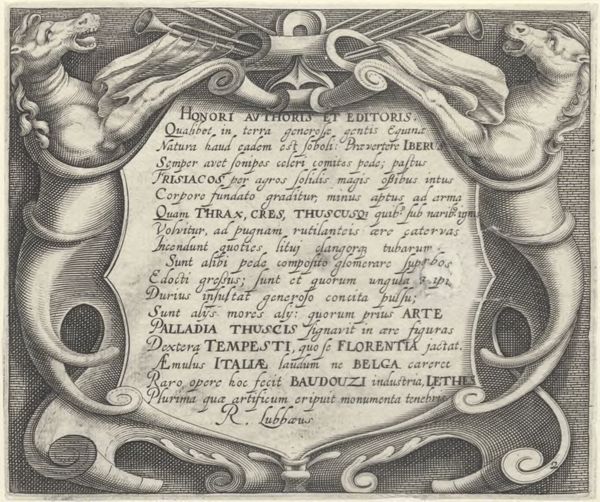 HONORI AVTHORIS ET EDITORIS.
Qualibet in terra generosæ gentis Equinæ
Natura haud eadem est soboli: Prævertere IBERUS
Semper avet sonipes celeri comites pede; pastus
FRISIACOS per agros solidis magis ossibus intus
Corpore fundato graditur; minus aptus ad arma
Quam THRAX, CRES, THUSCUSQ; quib9 sub narib9 ignis
Volvitur, ad pugnam rutilanteis ære catervas
Incendunt quoties litui clangorq; tubarum
Sunt alibi pede composito glomerare superbos
Edocti gressus; sunt et quorum ungula
Durius insultat generoso concita pulsu;
Sunt alijs mores alij: quorum prius ARTE
PALLADIA THUSCIS signavit in ære figuras
Dextera TEMPESTI, quo se FLORENTIA jactat.
Æmulus ITALIÆ laudum ne BELGA careret
Raro opere hoc fecit BAUDOUZI industria, LETHES
Plurima quæ artificum eripuit monumenta tenebris
R. Lubbæus
2